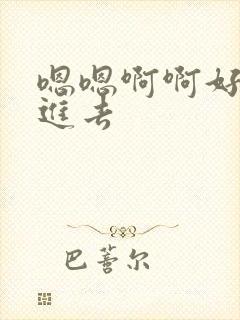 嗯嗯啊啊好
進去
巴蕾尔